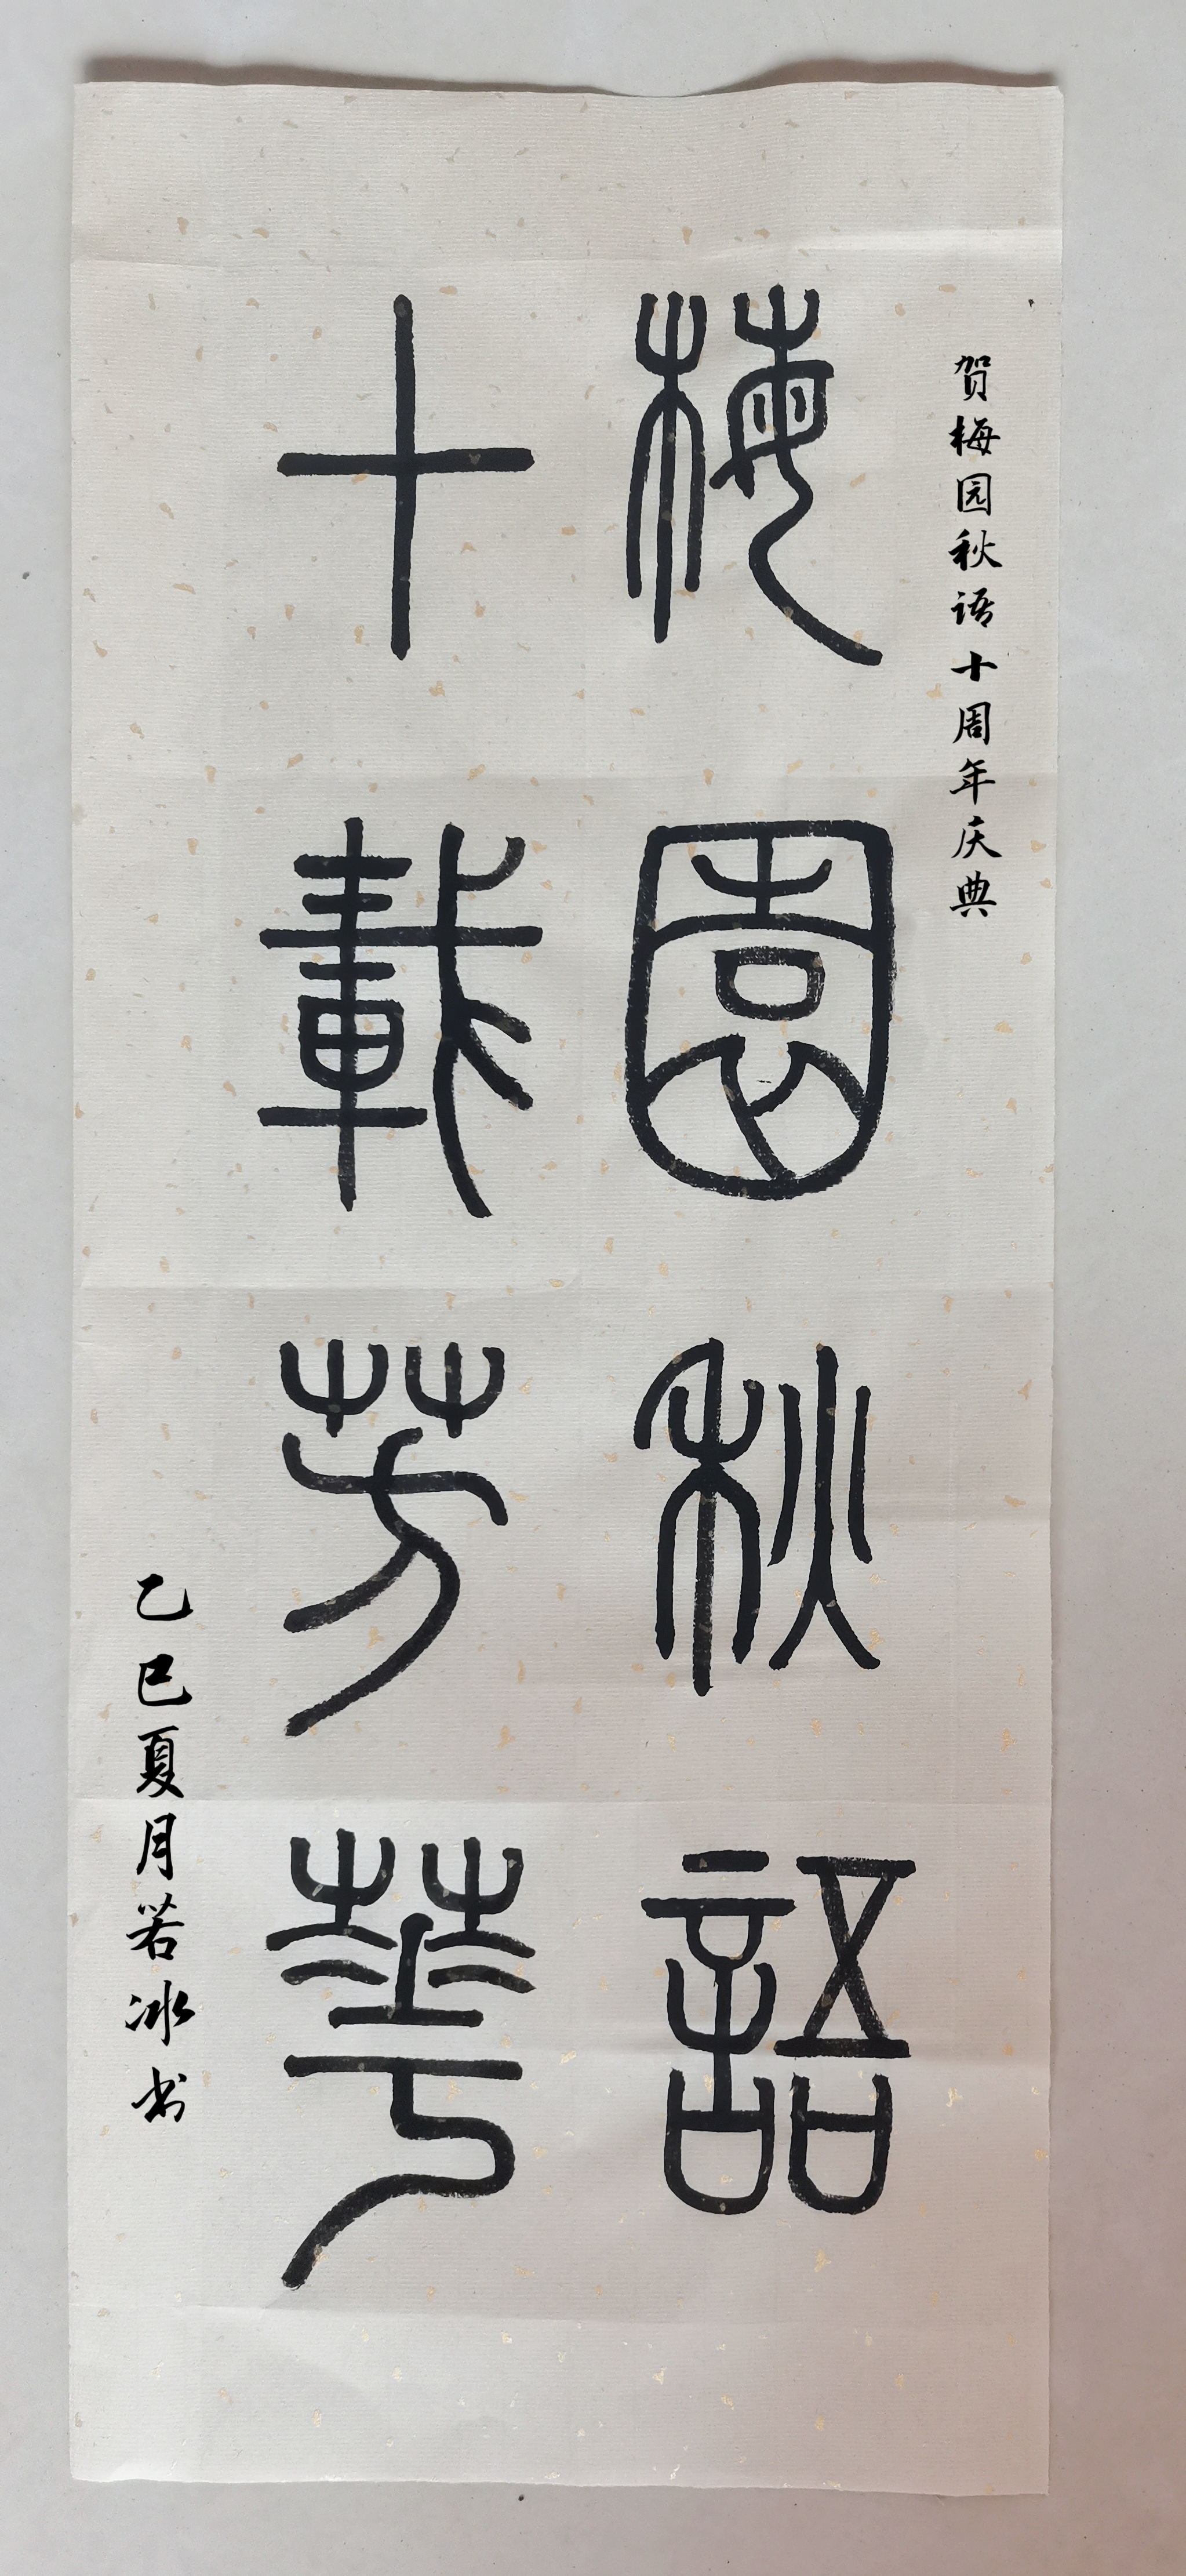 贺梅园秋语十周年庆典
梅園秋語
十載芳華
乙巳夏月若冰书